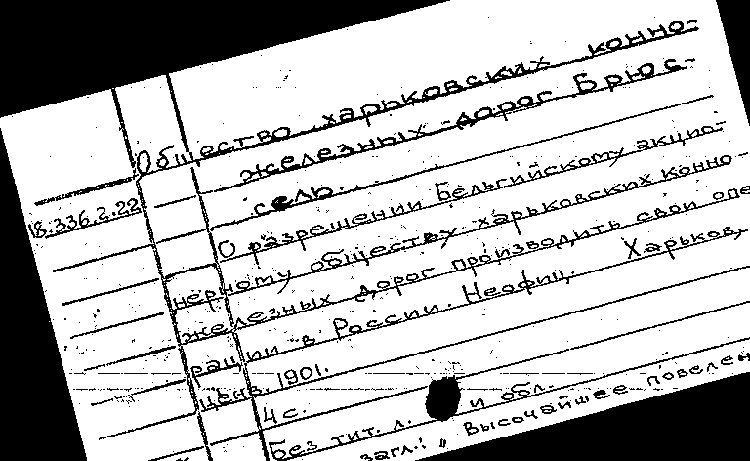 Общество харьковских конно-
железных дорог Брюс-
сель.
18.336.2.22
О разрешении Бельгийскому акцио-
нерному обществу харьковских конно-
железных дорог производить свои опе
рации в России. Неофиц. Харьков,
1901.
4 с.
Без тит. л. и обл.
загл.: "Высочайшее повелен